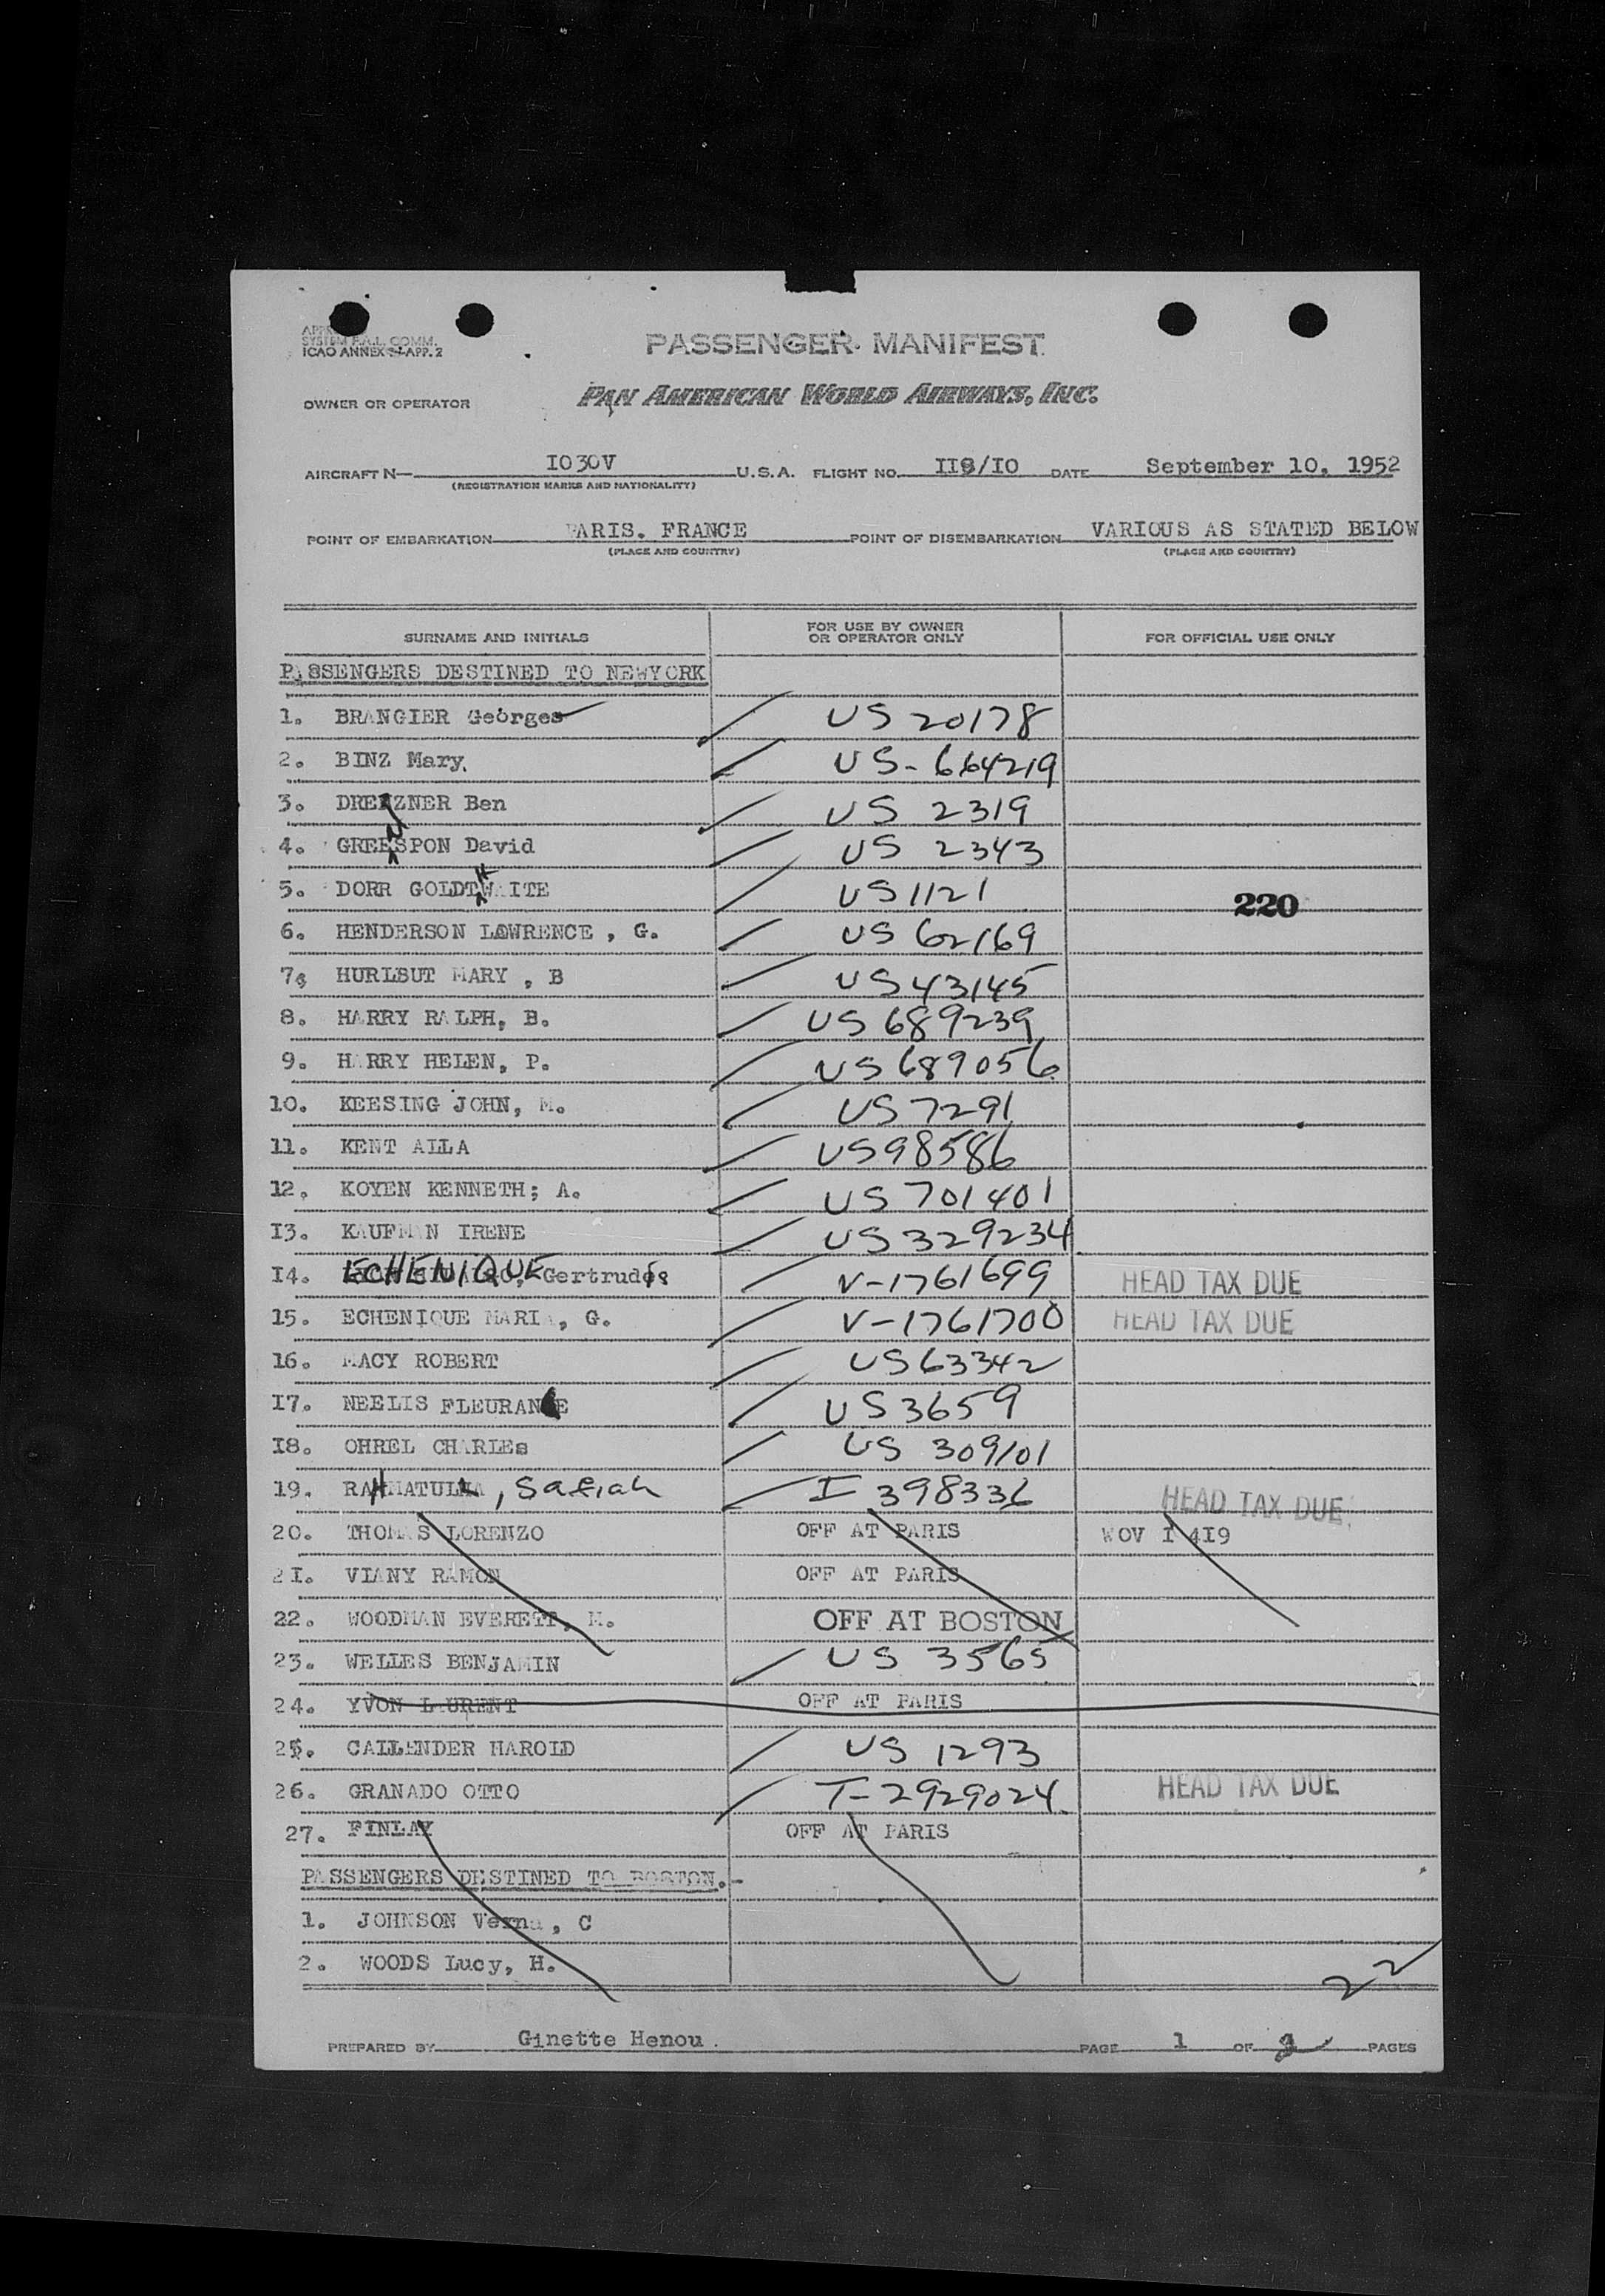 SYSTEM F.A.L. COMM.
ICAO ANNEX 9-APP. 2
PASSENGER MANIFEST
OWNER OR OPERATOR PAN AMERICAN WORLD AIRWAYS, INC.
AIRCRAFT N— I030V U.S.A. FLIGHT NO. II9/I0 DATE September 10, 1952
(REGISTRATION MARKS AND NATIONALITY)
POINT OF EMBARKATION PARIS. FRANCE POINT OF DISEMBARKATION VARIOUS AS STATED BELOW
(PLACE AND COUNTRY) (PLACE AND COUNTRY)
SURNAME AND INITIALS FOR USE BY OWNER OR OPERATOR ONLY FOR OFFICIAL USE ONLY
PASSENGERS DESTINED TO NEWYORK
1. BRANGIER Georges US 20178
2. BINZ Mary. US-664219
3. DREZNER Ben US 2319
4. GREENSPON David US 2343
5. DORR GOLDTHWAITE US 1121
220
6. HENDERSON LAWRENCE , G. US 62169
7. HURLBUT MARY , B US 43145
8. HARRY RALPH, B. US 689239
9. HARRY HELEN, P. US 689056
10. KEESING JOHN, M. US 7291
11. KENT ALLA US 98586
12. KOYEN KENNETH; A. US 701401
I3. KAUFMAN IRENE US 329234
I4. ECHENIQUE, Gertrudis V-1761699 HEAD TAX DUE
15. ECHENIQUE MARIA, G. V-1761700 HEAD TAX DUE
16. MACY ROBERT US 63342
I7. NEELIS FLEURANCE US 3659
I8. OHREL CHARLEs US 309101
19. RAHMATULLA, Safiah I 398336 HEAD TAX DUE
20. THOMAS LORENZO OFF AT PARIS WOV I 4I9
2I. VIANY RAMON OFF AT PARIS
22. WOODMAN EVERETT, M. OFF AT BOSTON
23. WELLES BENJAMIN US 3565
24. YVON LAURENT OFF AT PARIS
25. CALLENDER HAROLD US 1293
26. GRANADO OTTO T-2929024 HEAD TAX DUE
27. FINLAY OFF AT PARIS
PASSENGERS DESTINED TO BOSTON.-
1. JOHNSON Verna, C
2. WOODS Lucy, H.
22
PREPARED BY Ginette Henou. PAGE 1 OF 2 PAGES